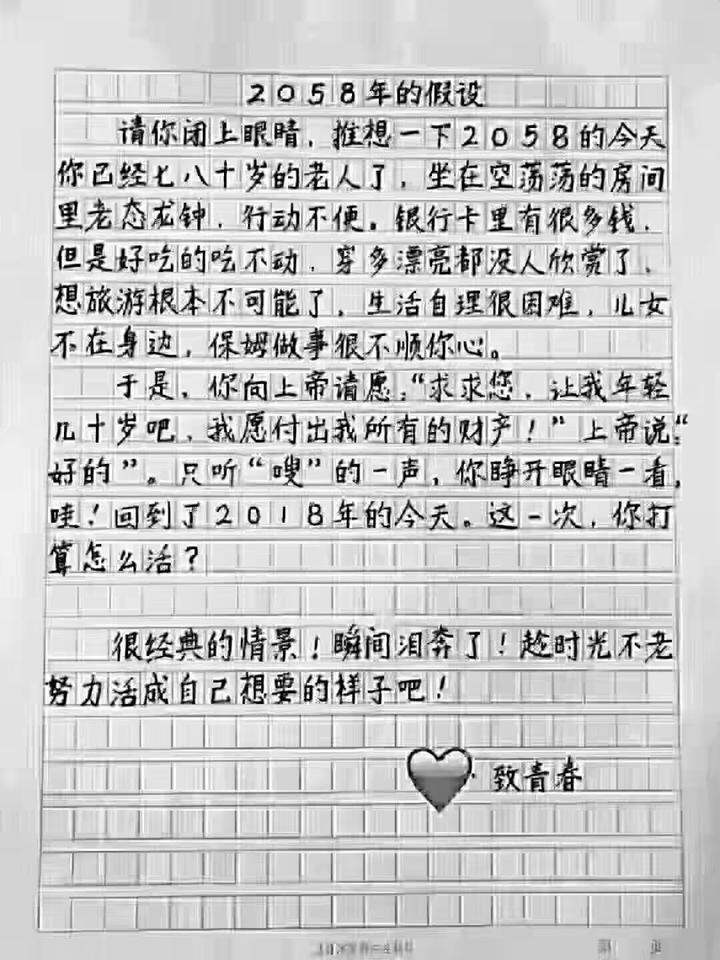 2058年的假设
请你闭上眼睛，推想一下2058的今天
你已经七八十岁的老人了，坐在空荡荡的房间
里老态龙钟，行动不便。银行卡里有很多钱，
但是好吃的吃不动，穿多漂亮都没人欣赏了，
想旅游根本不可能了，生活自理很困难，儿女
不在身边，保姆做事很不顺你心。
于是，你向上帝请愿：“求求您，让我年轻
几十岁吧，我愿付出我所有的财产！”上帝说：“
好的”。只听“嗖”的一声，你睁开眼睛一看，
哇！回到了2018年的今天。这一次，你打
算怎么活？
很经典的情景！瞬间泪奔了！趁时光不老
努力活成自己想要的样子吧！
致青春